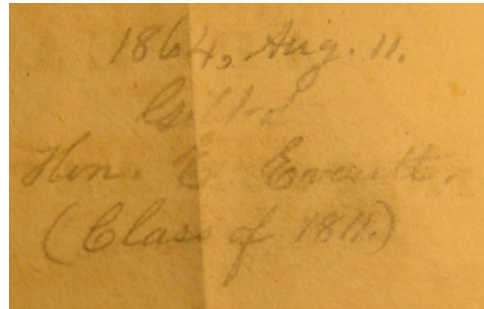 1864, Aug. 11.
Gift of
Hon. E. Everett.
(Class of 1811.)